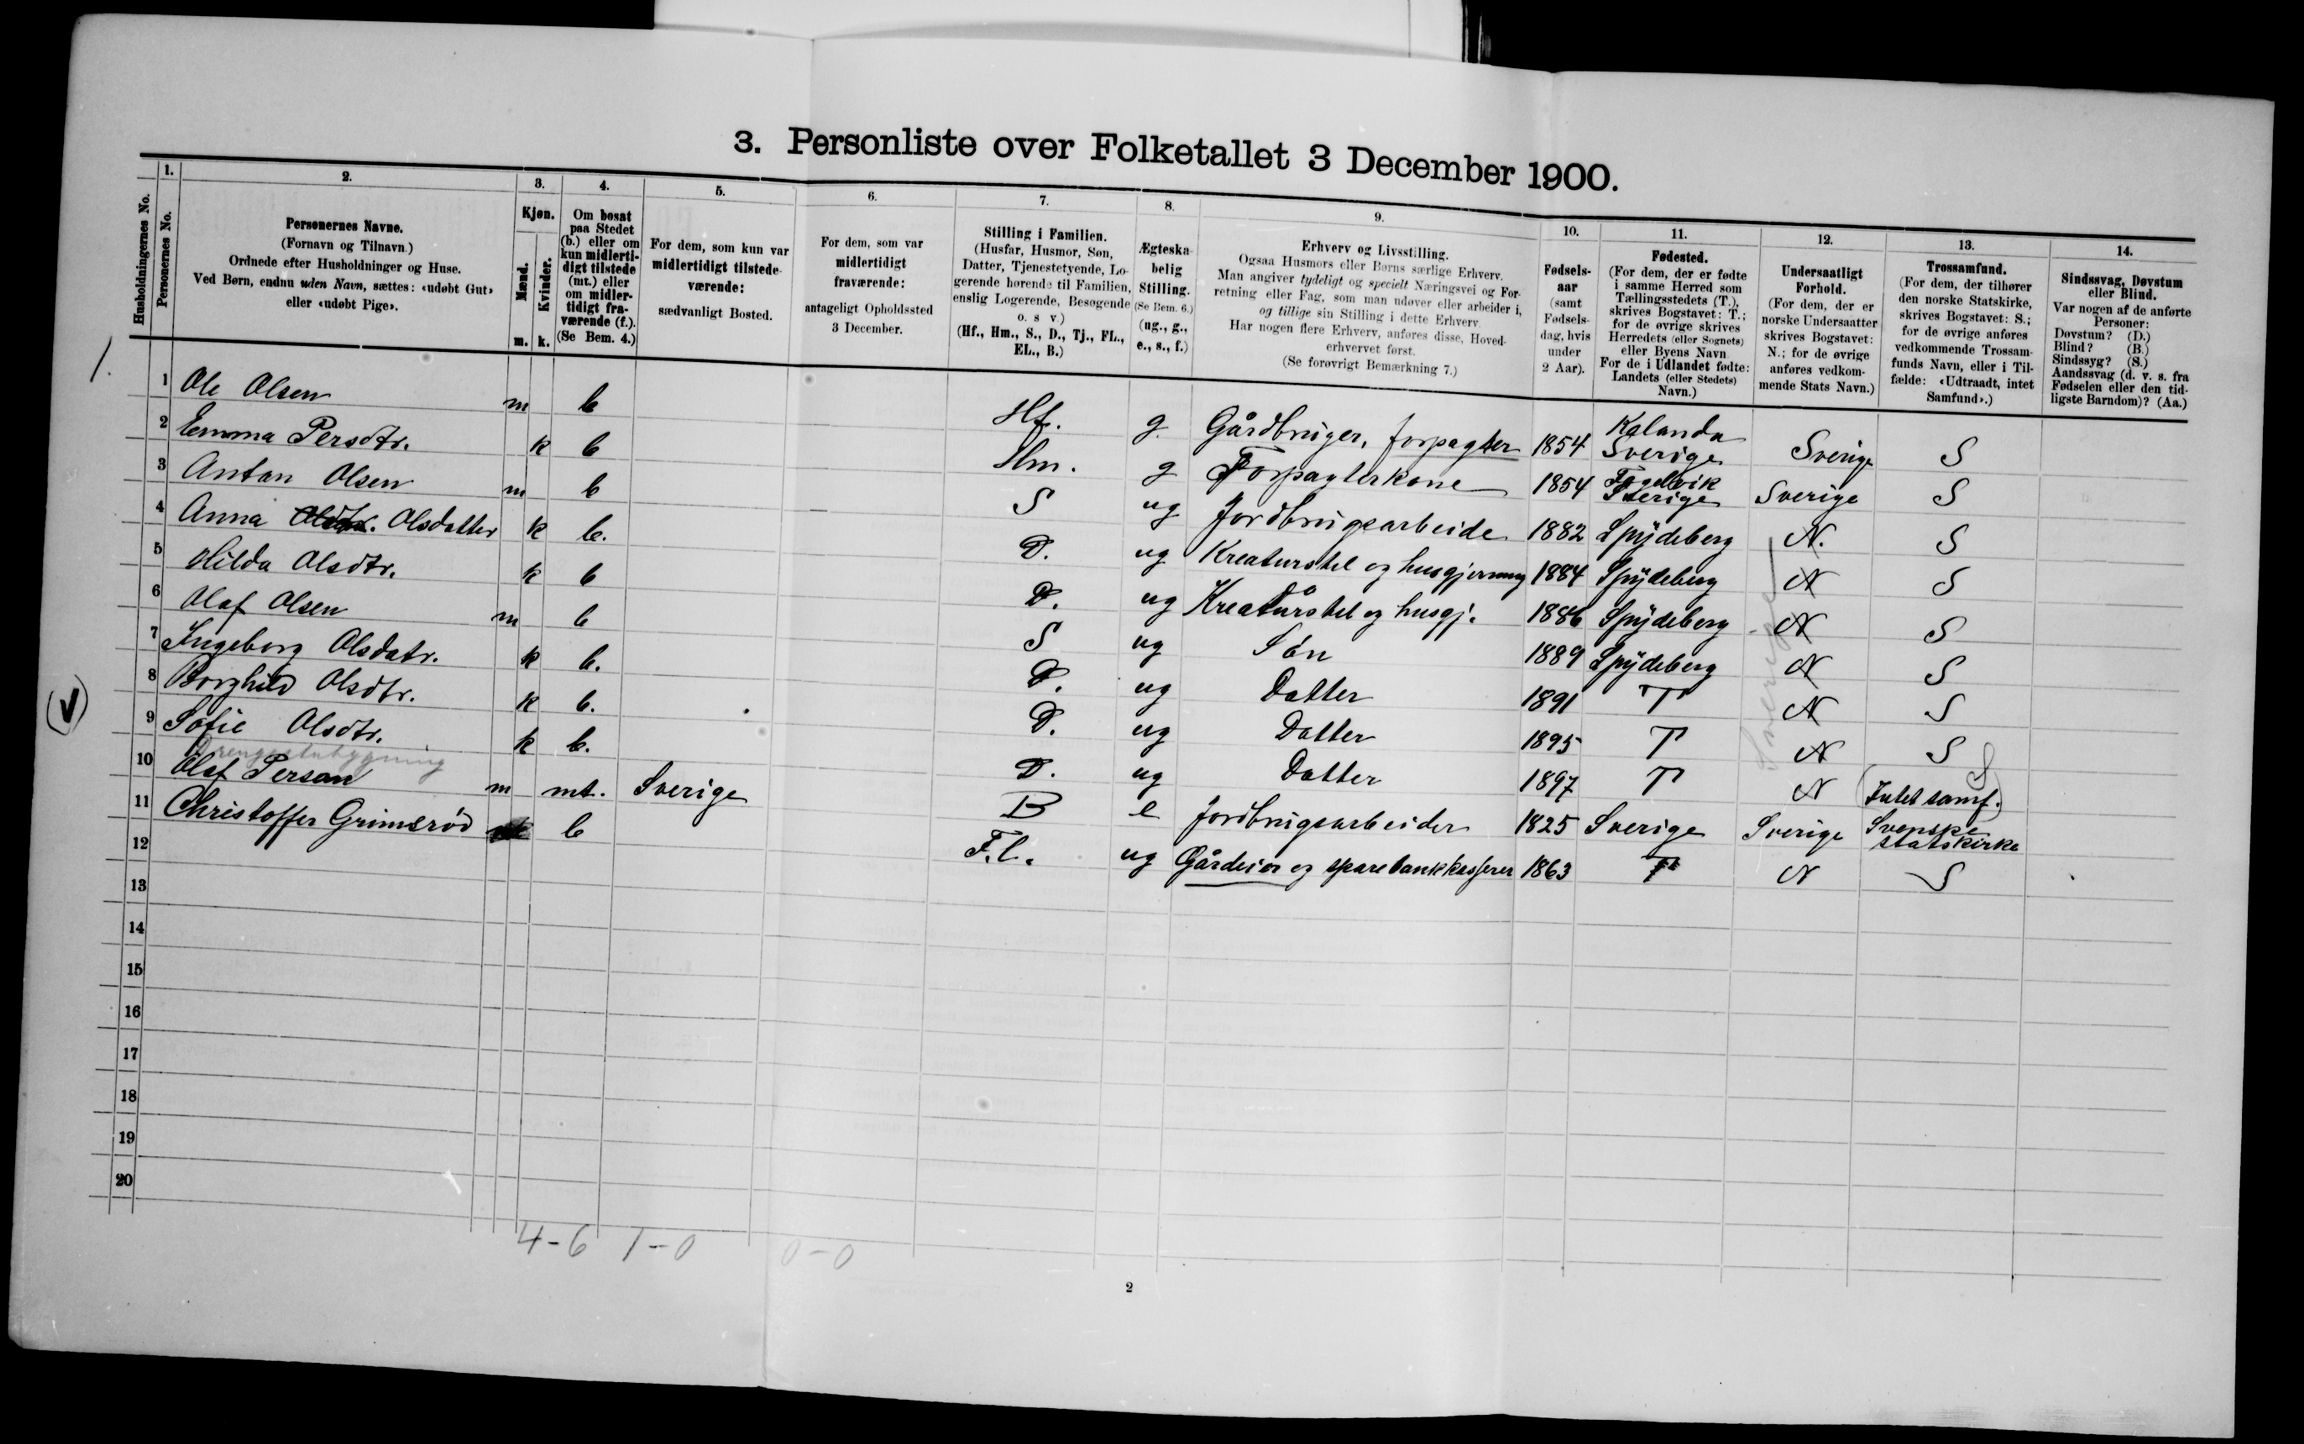 3. Personliste over Folketallet 3 December 1900.
Husholdningernes No.
1.
Personernes No.
2.
Personernes Navne.
(Fornavn og Tilnavn.)
Ordnede efter Husholdninger og Huse.
Ved Børn, endnu uden Navn, sættes: «udøbt Gut»
eller «udøbt Pige».
3.
Kjøn.
Mænd.
Kvinder.
m. k.
4.
Om bosat
paa Stedet
(b.) eller om
kun midlerti-
digt tilstede
(mt.) eller
om midler-
tidigt fra-
værende (f.).
(Se Bem. 4.)
5.
For dem, som kun var
midlertidigt tilstede-
værende:
sædvanligt Bosted.
6.
For dem, som var
midlertidigt
fraværende:
antageligt Opholdssted
3 December.
7.
Stilling i Familien.
(Husfar, Husmor, Søn,
Datter, Tjenestetyende, Lo-
gerende hørende til Familien,
enslig Logerende, Besøgende
o. s v.)
(Hf., Hm., S., D., Tj., FL.,
EL., B.)
8.
Ægteska-
belig
Stilling.
(Se Bem. 6.)
(ug., g.,
e., s., f.)
9.
Erhverv og Livsstilling.
Ogsaa Husmors eller Børns særlige Erhverv.
Man angiver tydeligt og specielt Næringsvei og For-
retning eller Fag, som man udøver eller arbeider i,
og tillige sin Stilling i dette Erhverv
Har nogen flere Erhverv, anføres disse, Hoved-
erhvervet først.
(Se forøvrigt Bemærkning 7.)
10.
Fødsels-
aar
(samt
Fødsels-
dag, hvis
under
2 Aar).
11.
Fødested.
(For dem, der er fødte
i samme Herred som
Tællingsstedets (T.),
skrives Bogstavet: T.;
for de øvrige skrives
Herredets (eller Sognets)
eller Byens Navn
For de i Udlandet fødte:
Landets (eller Stedets)
Navn.)
12.
Undersaatligt
Forhold.
(For dem, der er
norske Undersaatter
skrives Bogstavet:
N.; for de øvrige
anføres vedkom-
mende Stats Navn.)
13.
Trossamfund.
(For dem, der tilhører
den norske Statskirke,
skrives Bogstavet: S.;
for de øvrige anføres
vedkommende Trossam-
funds Navn, eller i Til-
fælde: «Udtraadt, intet
Samfund».)
14.
Sindssvag, Døvstum
eller Blind.
Var nogen af de anførte
Personer:
Døvstum? (D.)
Blind? (B.)
Sindssyg? (S.)
Aandssvag (d. v. s. fra
Fødselen eller den tid-
ligste Barndom)? (Aa.)
1.
1 Ole Olsen m b Hf. g. Gårdbruger, forpagter 1854 Kalanda Sverige Sverige S
2 Emma Persdtr. k b Hm. g Forpagterkone 1854 Fogelvik Sverige Sverige S
3 Anton Olsen m b S ug Jordbrugsarbeide 1882 Spydeberg N. S
4 Anna Olsdtr. Olsdatter k b. D. ug Kreaturstel og husgjerning 1884 Spydeberg N S
5 Hilda Olsdtr. k b D. ug Kreaturstel og husgj. 1886 Spydeberg N S
6 Olaf Olsen m b S ug Sön 1889 Spydeberg N S
7 Ingeborg Olsdatr. k b. D. ug Datter 1891 T N S
8 Borghild Olsdtr. k b. D. ug Datter 1895 T N S
9 Sofie Olsdtr. k b. D. ug Datter 1897 T N (Intet samf.)
Drengestubygning
Sverige
10 Olaf Persan m mt. Sverige B e Jordbrugsarbeider 1825 Sverige Sverige Svenske statskirke
11 Christoffer Grimsrød m b F.l. ug Gårdeier og sparebankkasserer 1863 T N S
12
13
14
15
16
17
18
19
20
4-6 1-0 0-0
2